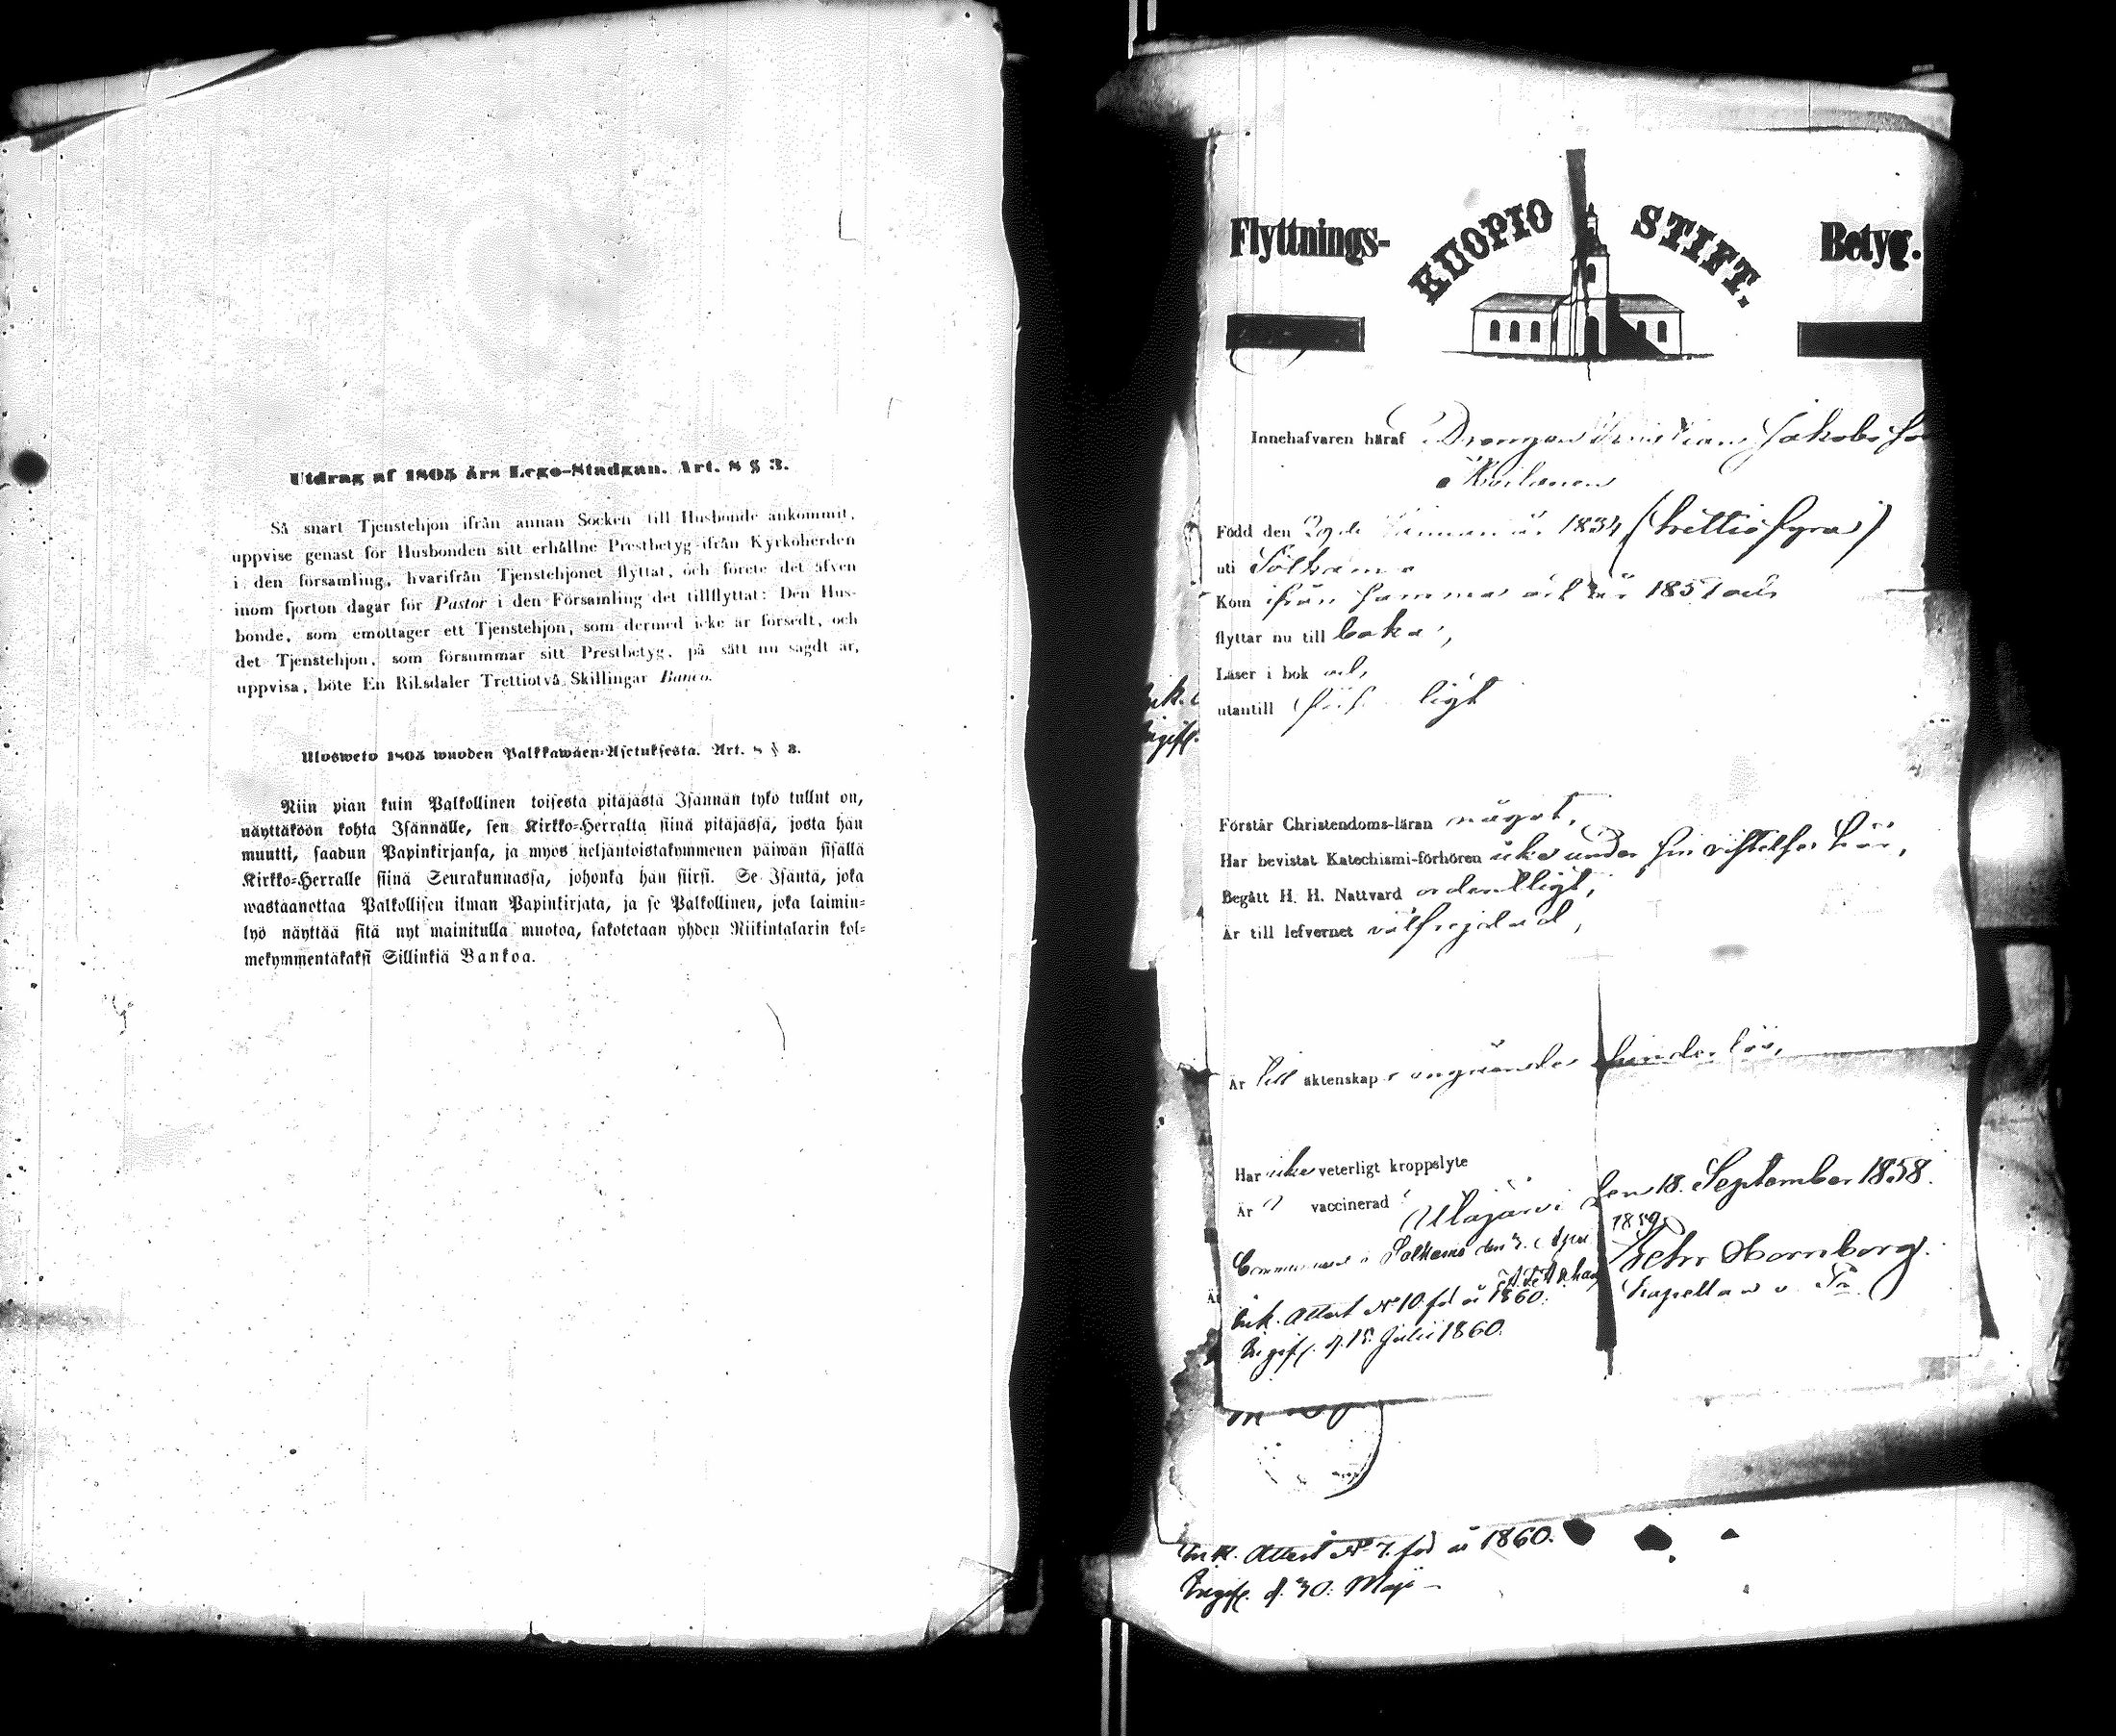 Utdrag af 1805 års Lego-Stadgan. Art. 8 § 3.
Så snart Tjenstehjon ifrån annan Socken till Husbonde ankommit,
uppvise genast för Husbonden sitt erhållne Prestbetyg ifrån Kyrkoherden
i den församling, hvarifrån Tjenstehjonet flyttat, och förete det äfven
inom fjorton dagar för Pastor i den Församling det tillflyttat: Den Hus-
bonde, som emottager ett Tjenstehjon, som dermed icke är försedt, och
det Tjenstehjon, som försummar sitt Prestbetyg, på sätt nu sagdt är,
uppvisa, böte En Riksdaler Trettiotvå Skillingar Banco.
Ulosweto 1805 wuoden Palkkawäen-Asetuksesta. Art. 8 § 3.
Niin pian kuin Palkollinen toisesta pitäjästä Isännän tykö tullut on,
näyttäköön kohta Isännälle, sen Kirkko-Herralta siinä pitäjässä, josta hän
muutti, saadun Papinkirjansa, ja myös neljäntoistakymmenen päiwän sisällä
Kirkko-Herralle siinä Seurakunnassa, johonka hän siirsi. Se Isäntä, joka
wastaanottaa Palkollisen ilman Papinkirjata, ja se Palkollinen, joka laimin-
lyö näyttää sitä nyt mainitulla muotoa, sakotetaan yhden Riikintalarin kol-
mekymmentäkaksi Sillinkiä Bankoa.
Flyttnings- KUOPIO STIFT. Betyg.
Innehafvaren häraf Drengen Christian Jakobs
Född den 1834 (trettiofyra)
uti Sotkamo
Kom ifrån samma ort år 1857 och
flyttar nu till baka,
Läser i bok väl,
utantill
Förstår Christendoms-läran något,
Har bevistat Katechismi-förhören icke under sin vistelse här,
Begått H. H. Nattvard ordentligt,
Är till lefvernet välfrejdad,
Är till äktenskap hinderlös,
Har icke veterligt kroppslyte
Är vaccinerad
den 18. September 1858.
Sotkamo den 3. 1859
Petr Hornborg.
Kapellan
Ink. Attest No 10. för år 1860.
Ingift. d. 15. Julii 1860.
Ink. Attest No 7. för år 1860.
Ingift. d. 30. Maji